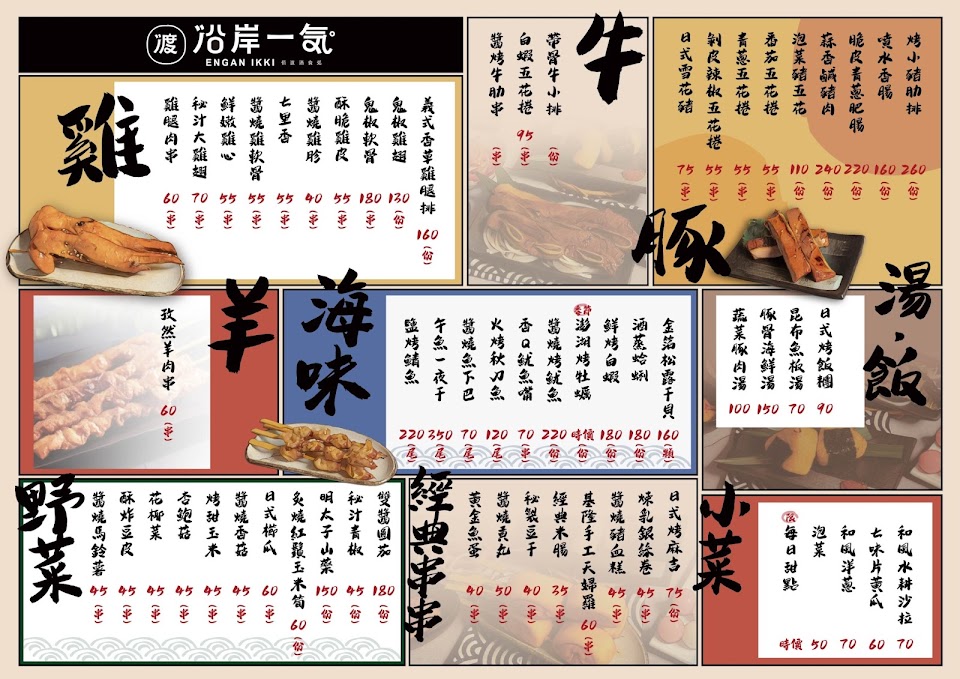 渡 沿岸一気
ENGAN IKKI
雞
義式香草雞腿排 160 (份)
鬼椒雞翅 130 (份)
鬼椒軟骨 180 (份)
酥脆雞皮 55 (串)
醬燒雞胗 40 (串)
七里香 55 (串)
醬燒雞軟骨 55 (串)
鮮嫩雞心 55 (串)
秘汁大雞翅 70 (串)
雞腿肉串 60 (串)
牛
帶骨牛小排 (份)
白蝦五花捲 95 (串)
醬烤牛肋串 (串)
豚
烤小豬肋排 260 (份)
噴水香腸 160 (份)
脆皮青蔥肥腸 220 (份)
蒜香鹹豬肉 240 (份)
泡菜豬五花 110 (份)
番茄五花捲 55 (串)
青蔥五花捲 55 (串)
剝皮辣椒五花捲 55 (串)
日式雪花豬 75 (串)
羊
孜然羊肉串 60 (串)
海味
金箔松露干貝 160 (顆)
酒蒸蛤蜊 180 (份)
鮮烤白蝦 180 (份)
澎湖烤牡蠣 時價 (份)
醬燒烤魷魚 220 (份)
香Q魷魚嘴 70 (串)
火烤秋刀魚 120 (尾)
醬燒魚下巴 70 (份)
午魚一夜干 350 (尾)
鹽烤鯖魚 220 (尾)
湯·飯
日式烤飯糰 90
昆布魚板湯 70
豚骨海鮮湯 150
蔬菜豚肉湯 100
野菜
雙醬圓茄 180 (份)
秘汁青椒 45 (份)
明太子山藥 150 (份)
炙燒紅鬚玉米筍 60 (份)
日式櫛瓜 60 (串)
醬燒香菇 45 (串)
烤甜玉米 45 (串)
杏鮑菇 45 (串)
花椰菜 45 (串)
酥炸豆皮 45 (串)
醬燒馬鈴薯 45 (串)
經典串串
日式烤麻吉 75 (份)
煉乳銀絲卷 45 (串)
醬燒豬血糕 45 (串)
基隆手工天婦羅 60 (串)
經典米腸 35 (串)
秘製豆干 40 (串)
醬燒貢丸 50 (串)
黃金魚蛋 40 (串)
小菜
和風水耕沙拉 70
七味片黃瓜 60
和風洋蔥 70
泡菜 50
每日甜點 時價